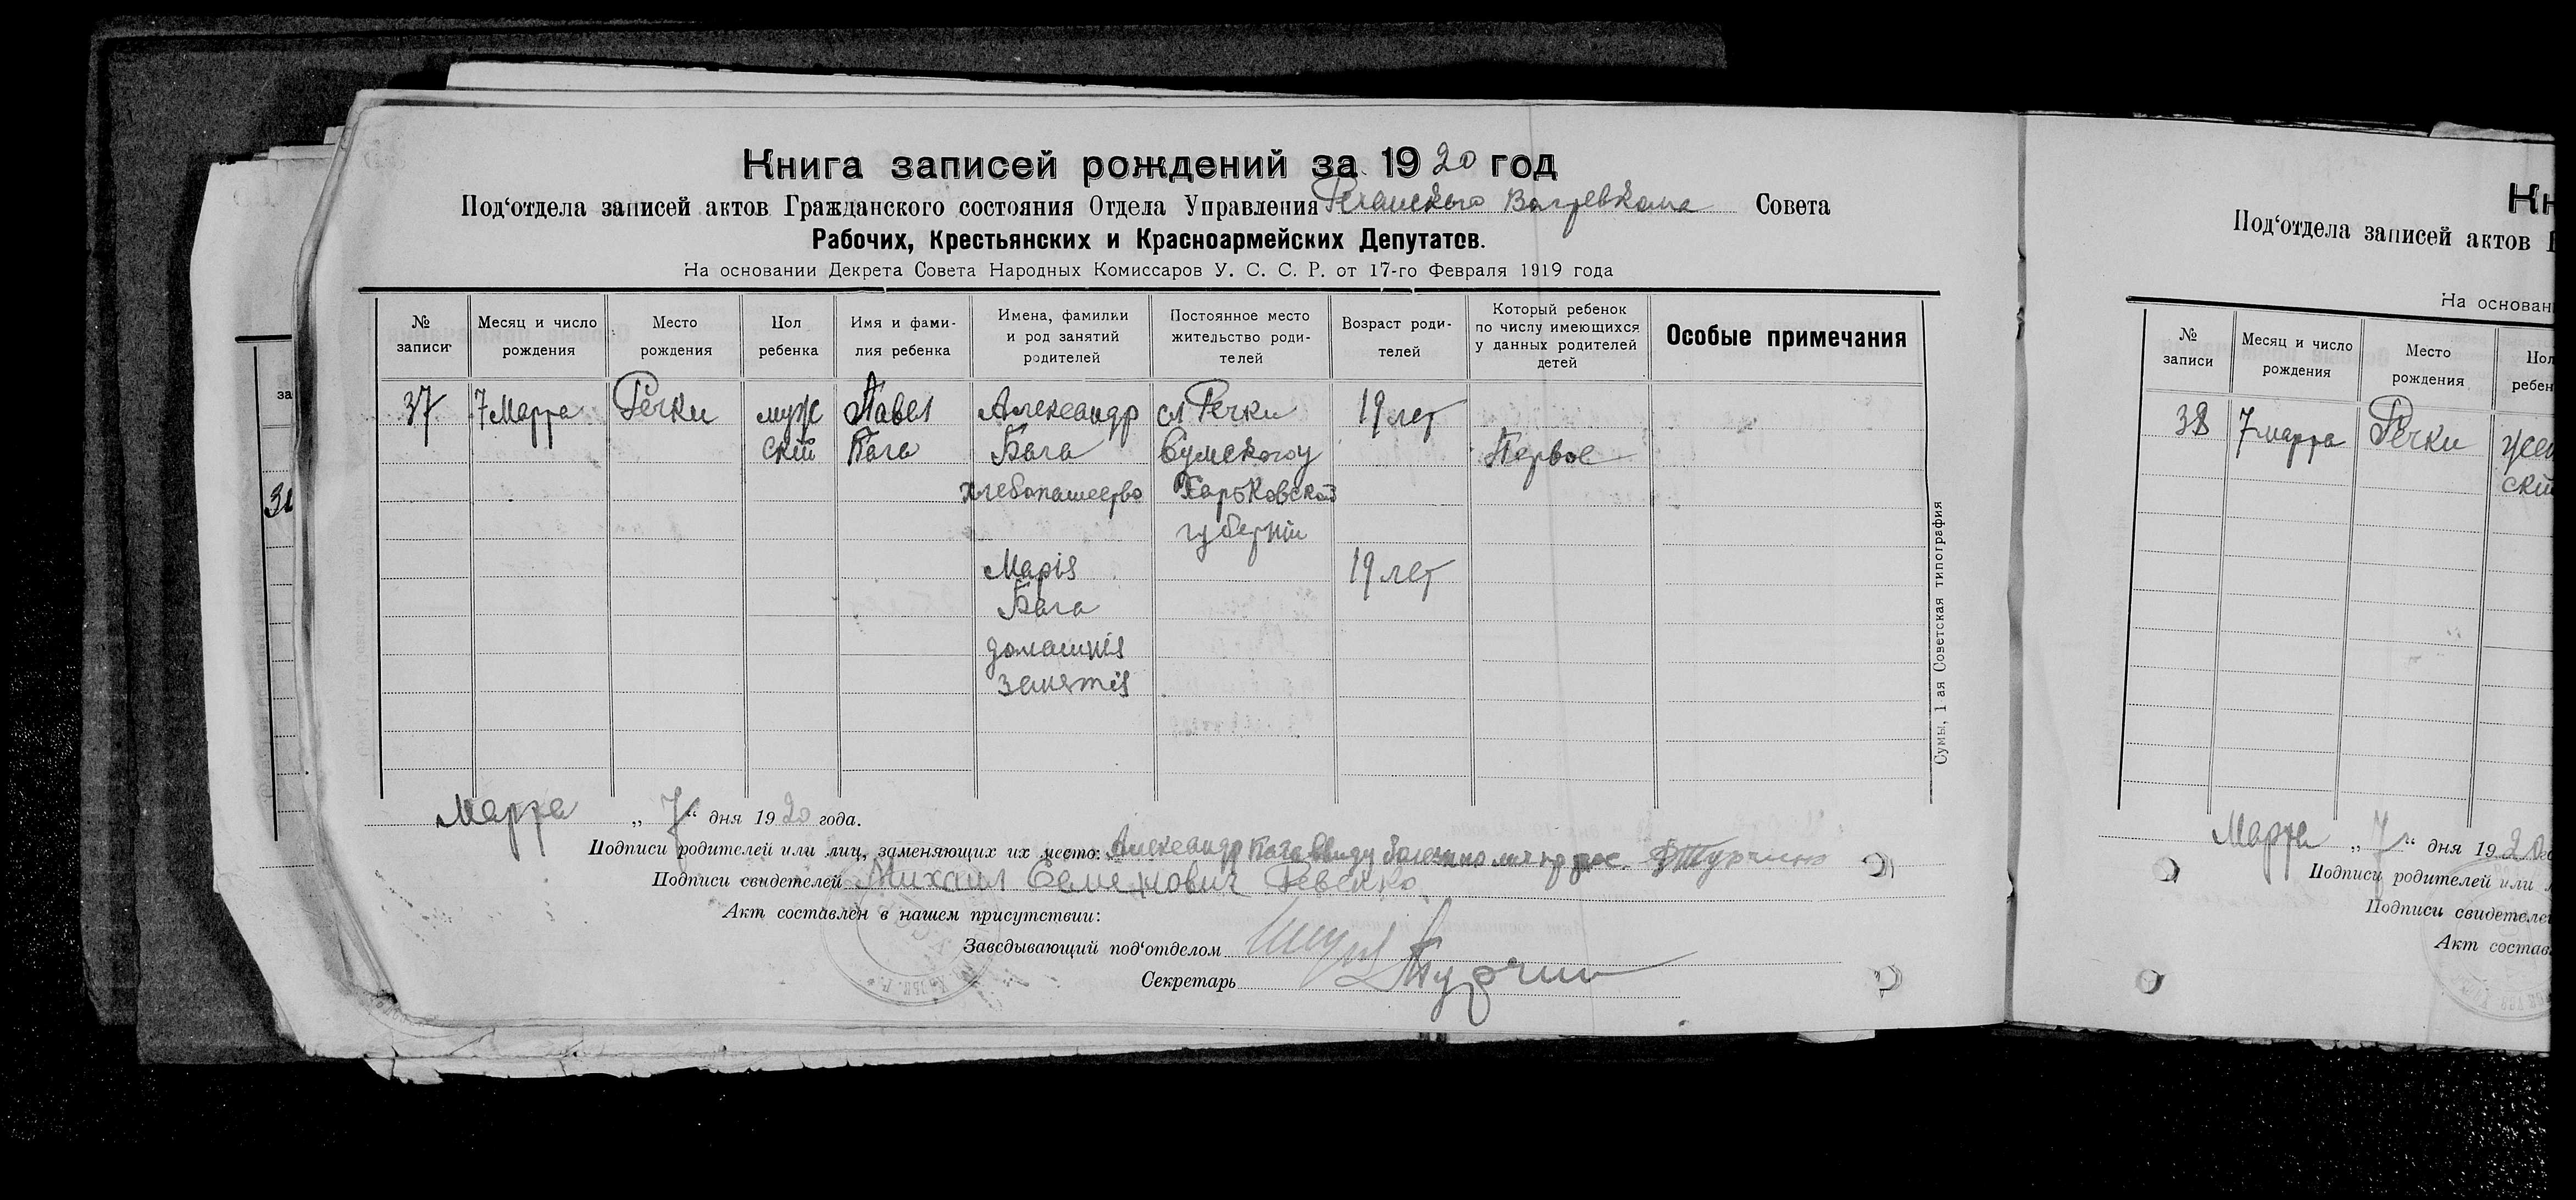 Книга записей рождений за 1920 год
Под‘отдела записей актов Гражданского состояния Отдела Управления Речанского Волревкома Совета
Рабочих, Крестьянских и Красноармейских Депутатов.
На основании Декрета Совета Народных Комиссаров У. С. С. Р. от 17-го Февраля 1919 года
№ записи
Месяц и число рождения
Место рождения
Пол ребенка
Имя и фамилия ребенка
Имена, фамилии и род занятий родителей
Постоянное место жительство родителей
Возраст родителей
Который ребенок по числу имеющихся у данных родителей детей
Особые примечания
37 7 Марта Речки муж Павел Александр сл Речки 19 лет
скій Бага Бага Сумского у Первое
хлебопашество Харьковской
губерніи
Марія 19 лет
Бага
домашнія
занятія
Сумы, 1 ая Советская типография
Марта „7“ дня 1920 года.
Подписи родителей или лиц, заменяющих их место: Александр Бага Ввиду Турчин
Подписи свидетелей Михаил Семенович Ревенко
Акт составлен в нашем присутствии:
Заведывающий под‘отделом
Секретарь Турчин
Кн
Под‘отдела записей актов
На основан
№ записи
Месяц и число рождения
Место рождения
Пол ребен
38 7 марта Речки жен
скій
Марта „7“ дня 1920
Подписи родителей или
Подписи свидетеле
Акт состав
за